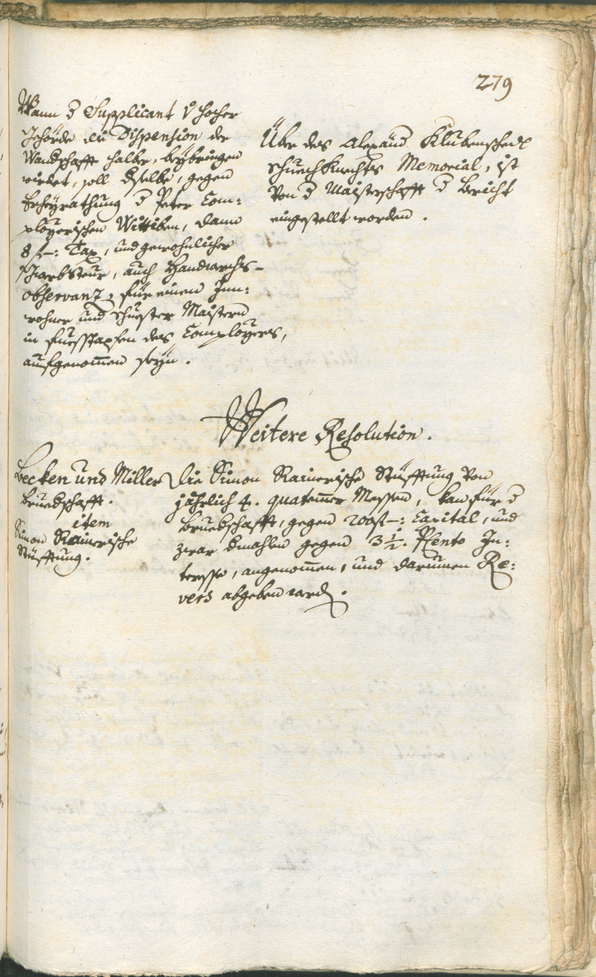 279
Wann d Supplicant v hocher
Behörde die Dispension der
Wandschafft halber, beybringen
wirdet, soll dselbe, gegen
Erheyrathung d Peter Com=
ployerischen Wittiben, dann
8 f –: Tax, und gewohnlicher
auch Handwerchs=
observanz, für einen Inn:
wohner und Schuester Maistern
in fuesstapfen des Employers,
aufgenomen seyn.
Über des Alexand
Schuechknechts Memorial, ist
von d Maisterschafft d Bericht
eingestellt worden.
Weitere Resolution.
Becken und Miller
Bruedschafft.
item
Simon Rainerische
Stüfftung.
Die Simon Rainerische Stüfftung von
jährlich 4. quatemer Messen, kan für d
Bruedschafft, gegen 200 f –: Capital, und
zwar dmahlen gegen 3½. Prento In:
teresse, angenomen, und darumen Re:
vers abgeben werd.